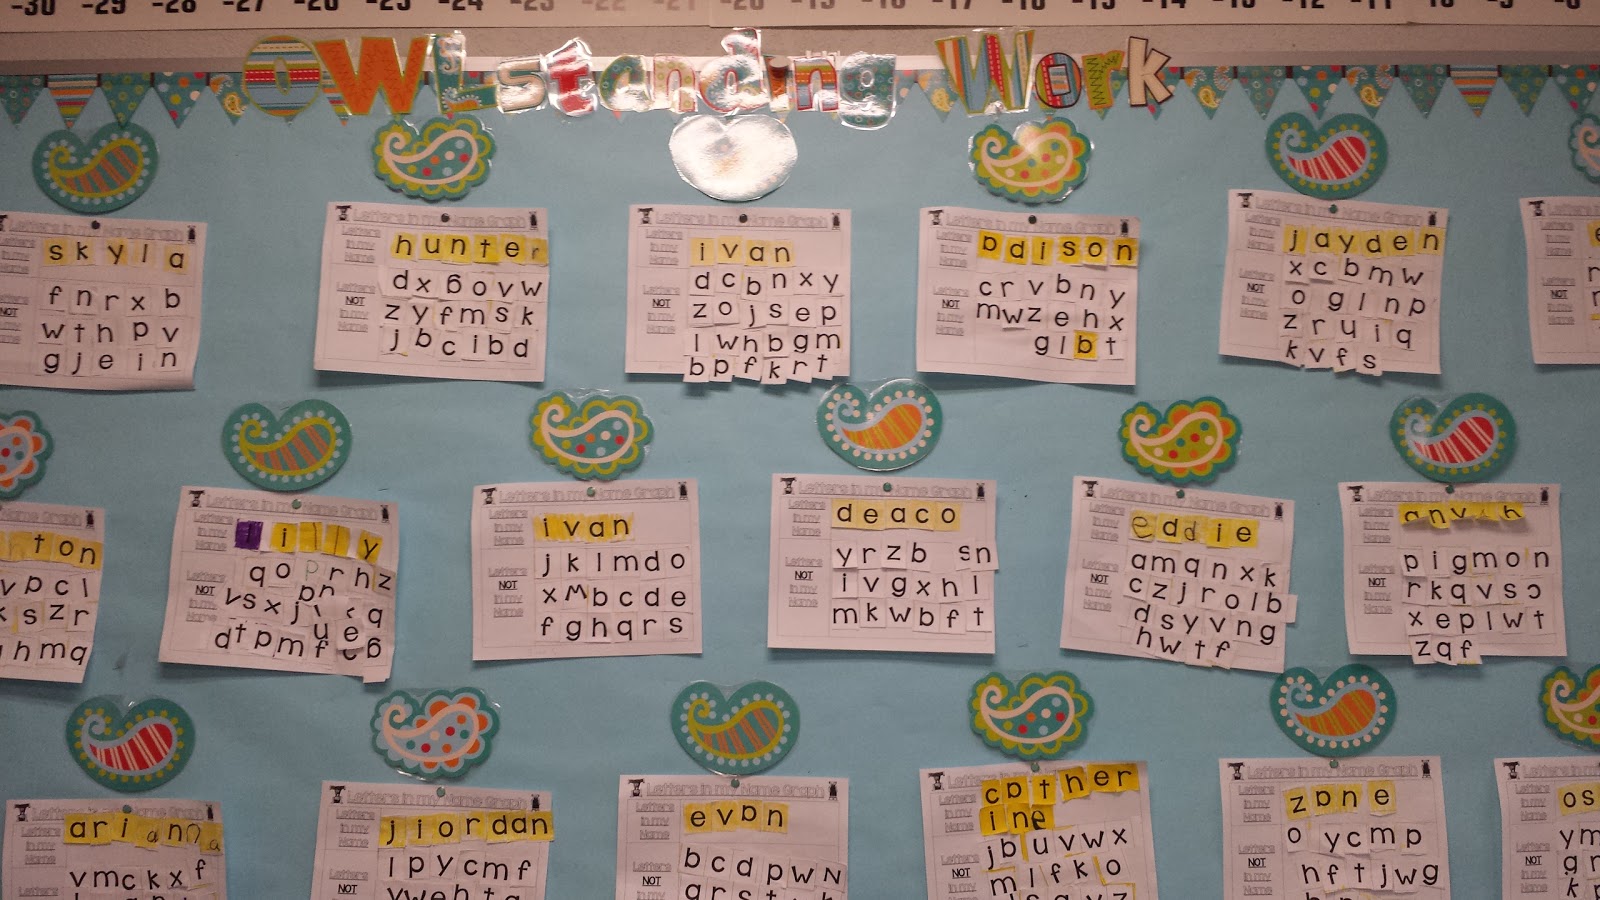 -30 -29 -28 -27 -26 -25 -24 -23 -22 -21 -20 -19 -18 -17 -16 -15 -14 -13 -12 -11 -10 -9 -8
OWLstanding Work
Letters in my Name
skyla
Letters NOT in my Name
f n r x b
w t h p v
g j e i n
Letters in my Name Graph
Letters in my Name
hunter
Letters NOT in my Name
d x g o v w
z y f m s k
j b c i b d
Letters in my Name Graph
Letters in my Name
ivan
Letters NOT in my Name
d c b n x y
z o j s e p
l w h b g m
b p f k r t
Letters in my Name Graph
Letters in my Name
adison
Letters NOT in my Name
c r v b n y
m w z e h x
g l b t
Letters in my Name Graph
Letters in my Name
jayden
Letters NOT in my Name
x c b m w
o g l n p
z r u i q
k v f s
ton
v p c l
k s z r
h m q
Letters in my Name Graph
Letters in my Name
lilly
Letters NOT in my Name
q o p r h z
v s x j
d t p m f
Letters in my Name Graph
Letters in my Name
ivan
Letters NOT in my Name
j k l m d o
x w b c d e
f g h q r s
Letters in my Name Graph
Letters in my Name
deaco
Letters NOT in my Name
y r z b s n
i v g x h l
m k w b f t
Letters in my Name Graph
Letters in my Name
eddie
Letters NOT in my Name
a m q n x k
c z j r o l b
d s y v n g
h w t f
Letters in my Name Graph
Letters in my Name
Letters NOT in my Name
p i g m o n
r k q v s c
x e p l w t
z q f
Letters in my Name Graph
Letters in my Name
arianna
v m c k x f
Letters
Letters in my Name Graph
Letters in my Name
jiordan
Letters NOT
l p y c m f
Letters in my Name Graph
Letters in my Name
evan
Letters NOT
b c d p w N
Letters in my Name Graph
Letters in my Name
cather
ine
Letters NOT
j b u v w x
m l f k o
Letters in my Name Graph
Letters in my Name
zane
Letters NOT
o y c m p
h f t j w g
Letters in my Name
os
y m